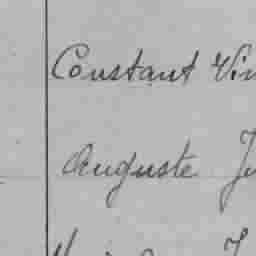 Constant Vin
Auguste Ju